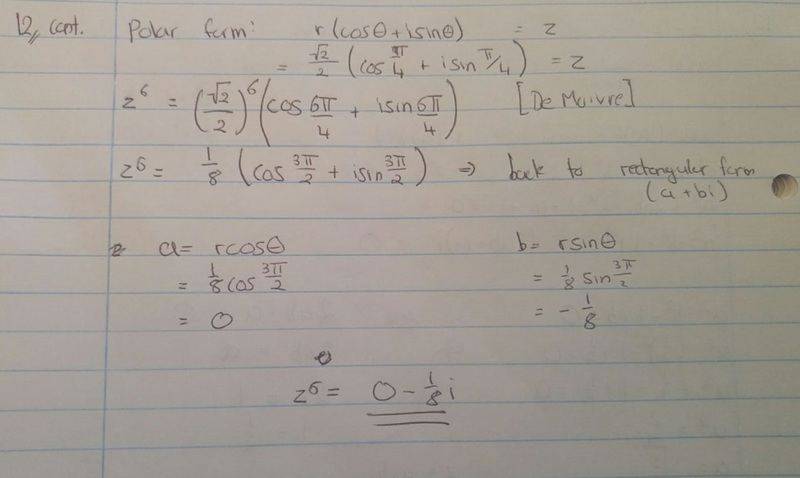 12, cont. Polar form: r(cosθ+isinθ) = z
= √2/2 (cos π/4 + isin π/4) = z
z⁶ = (√2/2)⁶ (cos 6π/4 + isin 6π/4) [De Moivre]
z⁶ = 1/8 (cos 3π/2 + isin 3π/2) ⇒ back to rectangular form
(a+bi)
a = rcosθ b = rsinθ
= 1/8 cos 3π/2 = 1/8 sin 3π/2
= 0 = - 1/8
z⁶ = 0 - 1/8 i